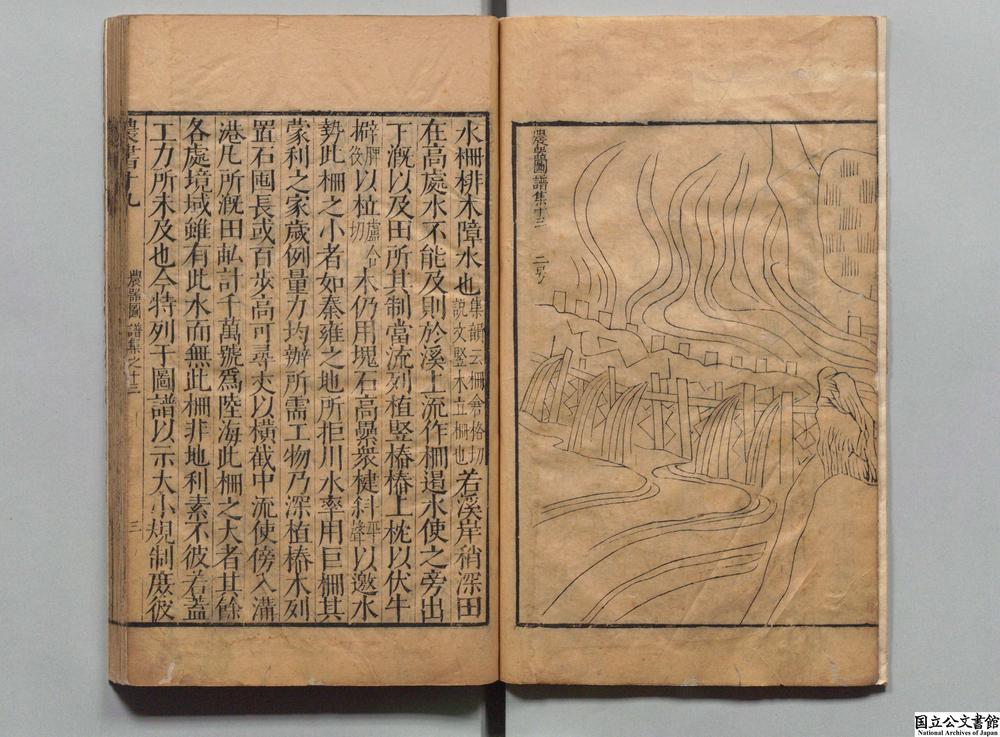 農器圖譜集十三
水柵排木障水也集韻云柵倉格切說文竪木立柵也若溪岸稍深田
在高處水不能及則於溪上流作柵遏水使之旁出
下溉以及田所其制當流列植竪樁樁上枕以伏牛
擗脾役切以柆盧合切木仍用塊石高壘衆楗斜平聲以邀水
勢此柵之小者如秦雍之地所拒川水率用巨柵其
蒙利之家歲例量力均辦所需工物乃深植樁木列
置石囤長或百步高可尋丈以橫截中流使傍入溝
港凡所溉田畝計千萬號爲陸海此柵之大者其餘
各處境域雖有此水而無此柵非地利素不彼若蓋
工力所未及也今特列于圖譜以示大小規制庶彼
農書十九 農器圖譜集之十三 三
国立公文書館
National Archives of Japan